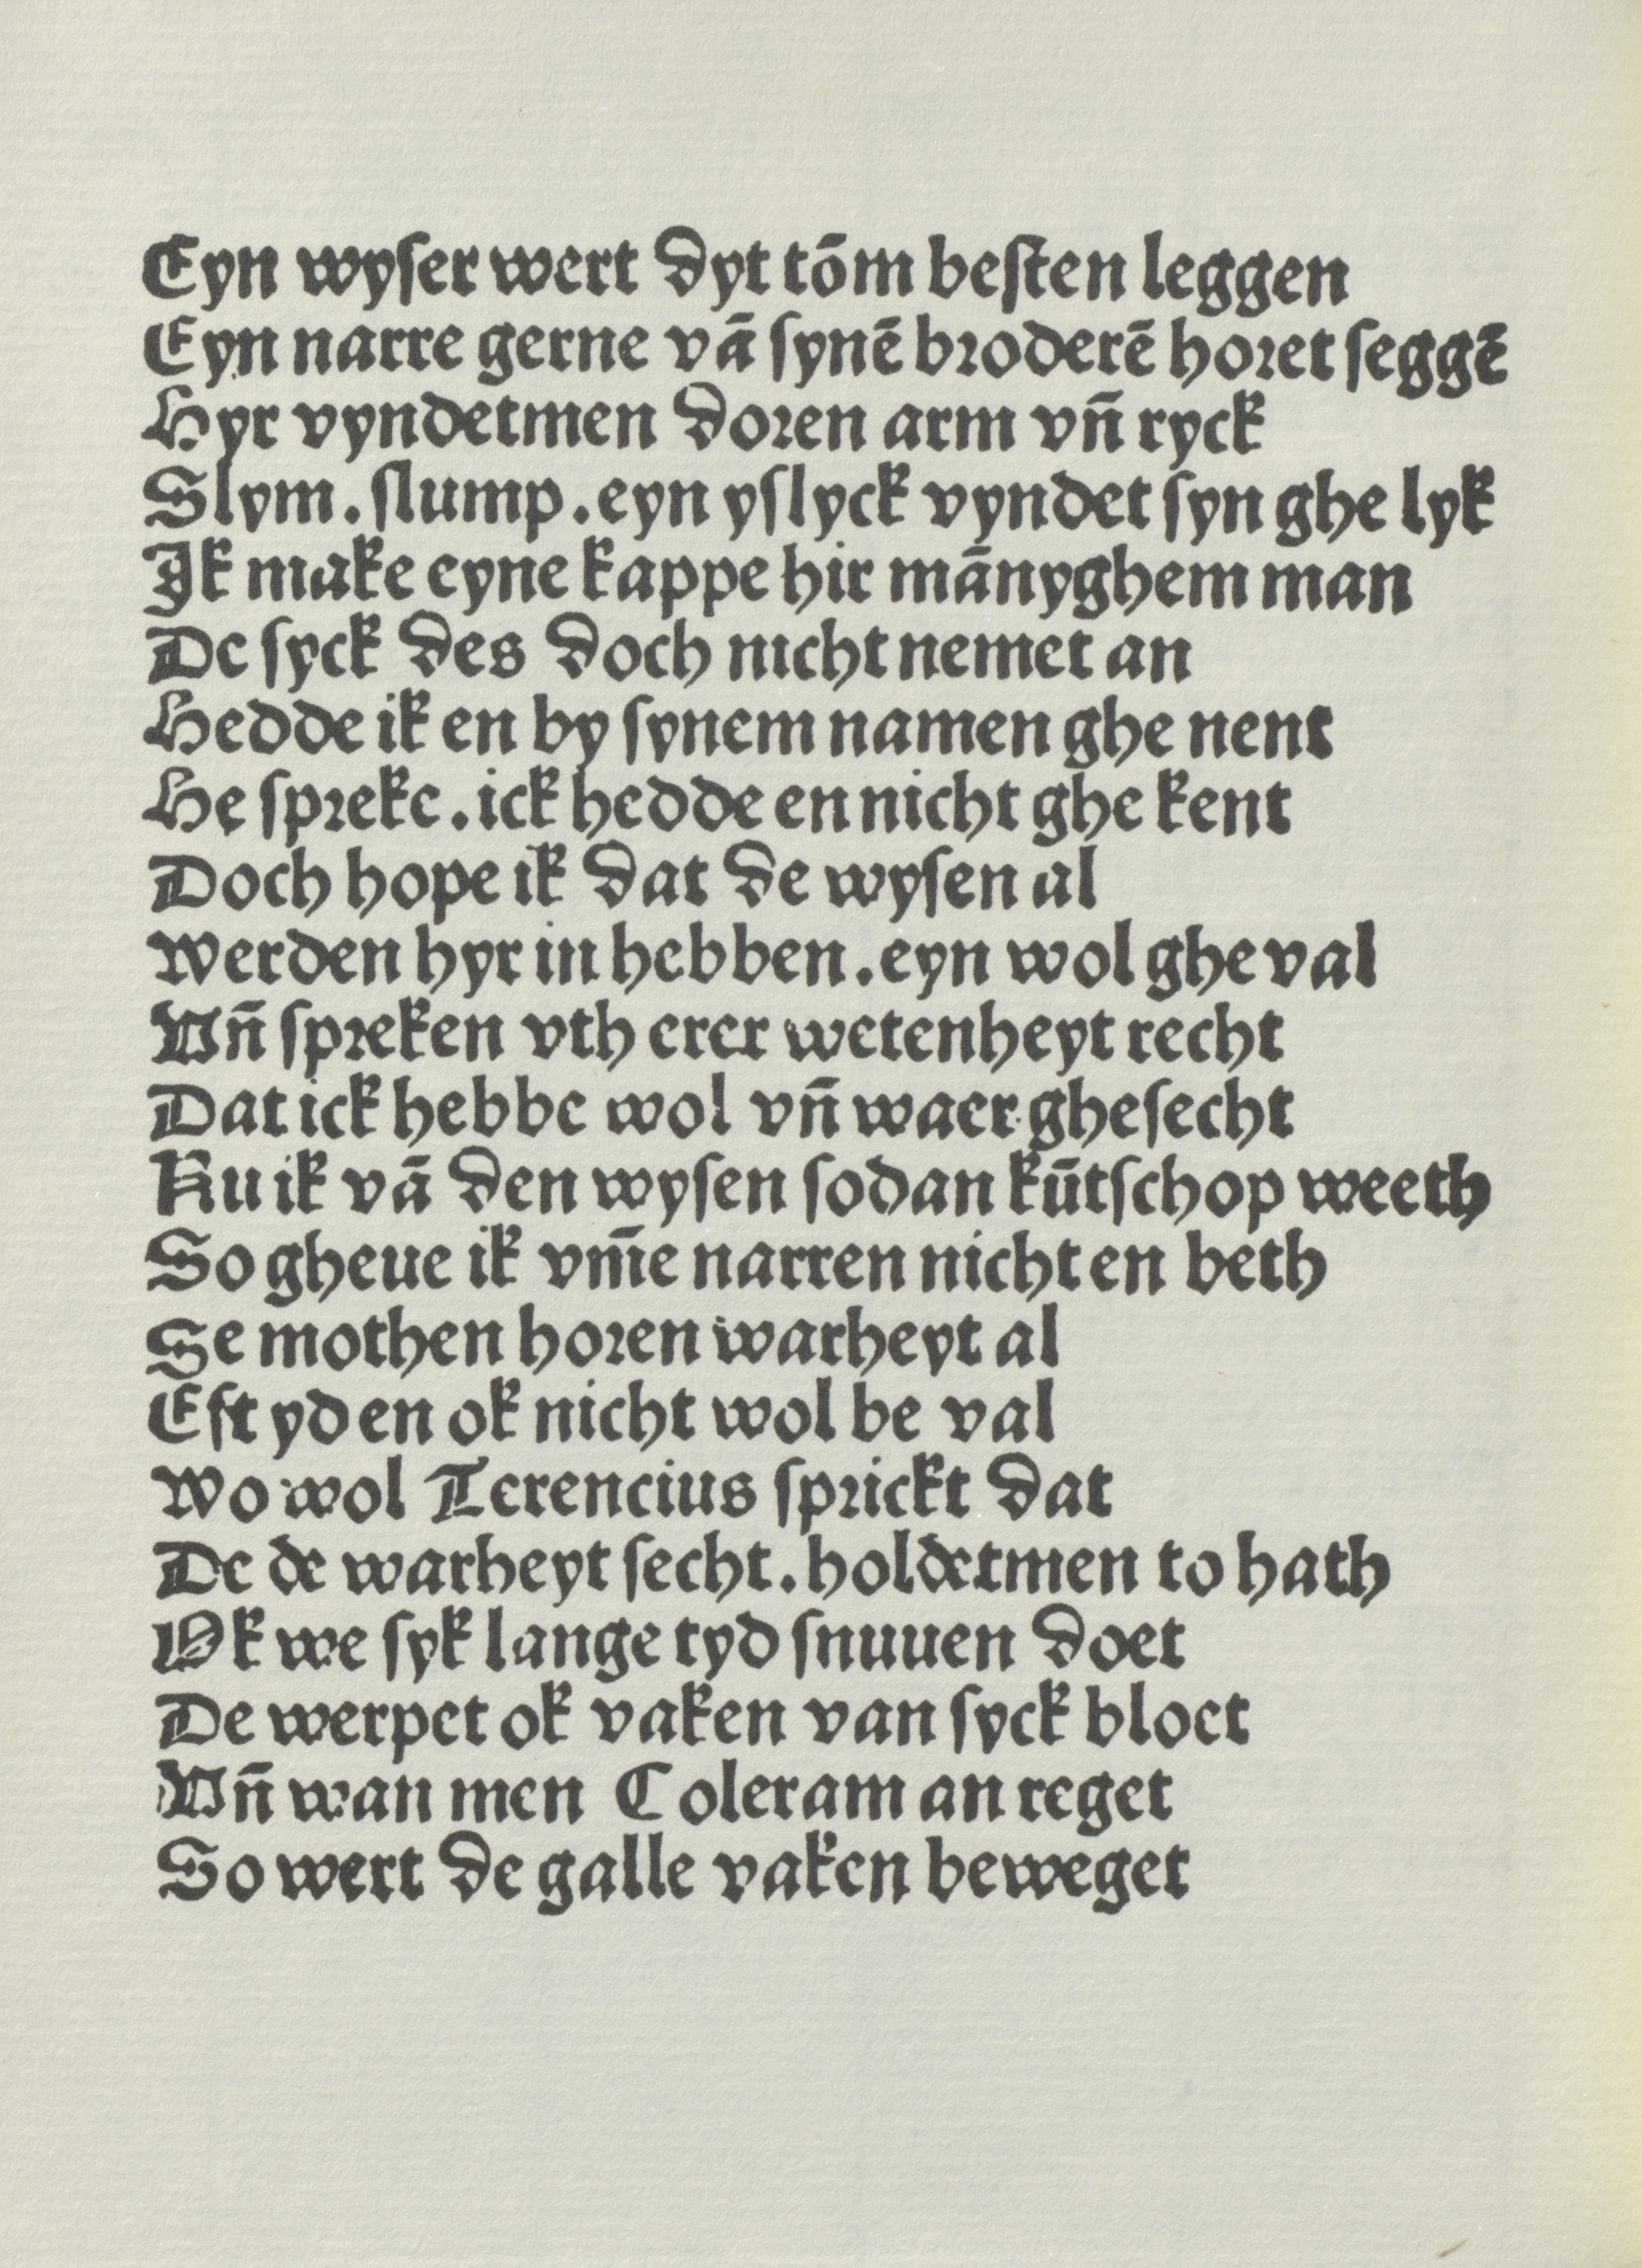 Eyn wyſer wert dyt tōm beſten leggen
Eyn narre gerne vā ſynē broderē horet ſeggē
Hyr vyndetmen doren arm vñ ryck
Slym. ſlump. eyn yſlyck vyndet ſyn ghe lyk
Ik make eyne kappe hir mānyghem man
De ſyck des doch nicht nemet an
Hedde ik en by ſynem namen ghe nent
He ſpreke. ick hedde en nicht ghe kent
Doch hope ik dat de wyſen al
Werden hyr in hebben. eyn wol ghe val
Vñ ſpreken vth erer wetenheyt recht
Dat ick hebbe wol vñ waer gheſecht
Nu ik vā den wyſen ſodan kūtſchop weeth
So gheue ik vm̄e narren nicht en beth
Se mothen horen warheyt al
Eft yd en ok nicht wol be val
Wo wol Terencius ſprickt dat
De de warheyt ſecht. holdetmen to hath
Ok we ſyk lange tyd ſnuuen doet
De werpet ok vaken van ſyck bloet
Vñ wan men Coleram an reget
So wert de galle vaken beweget